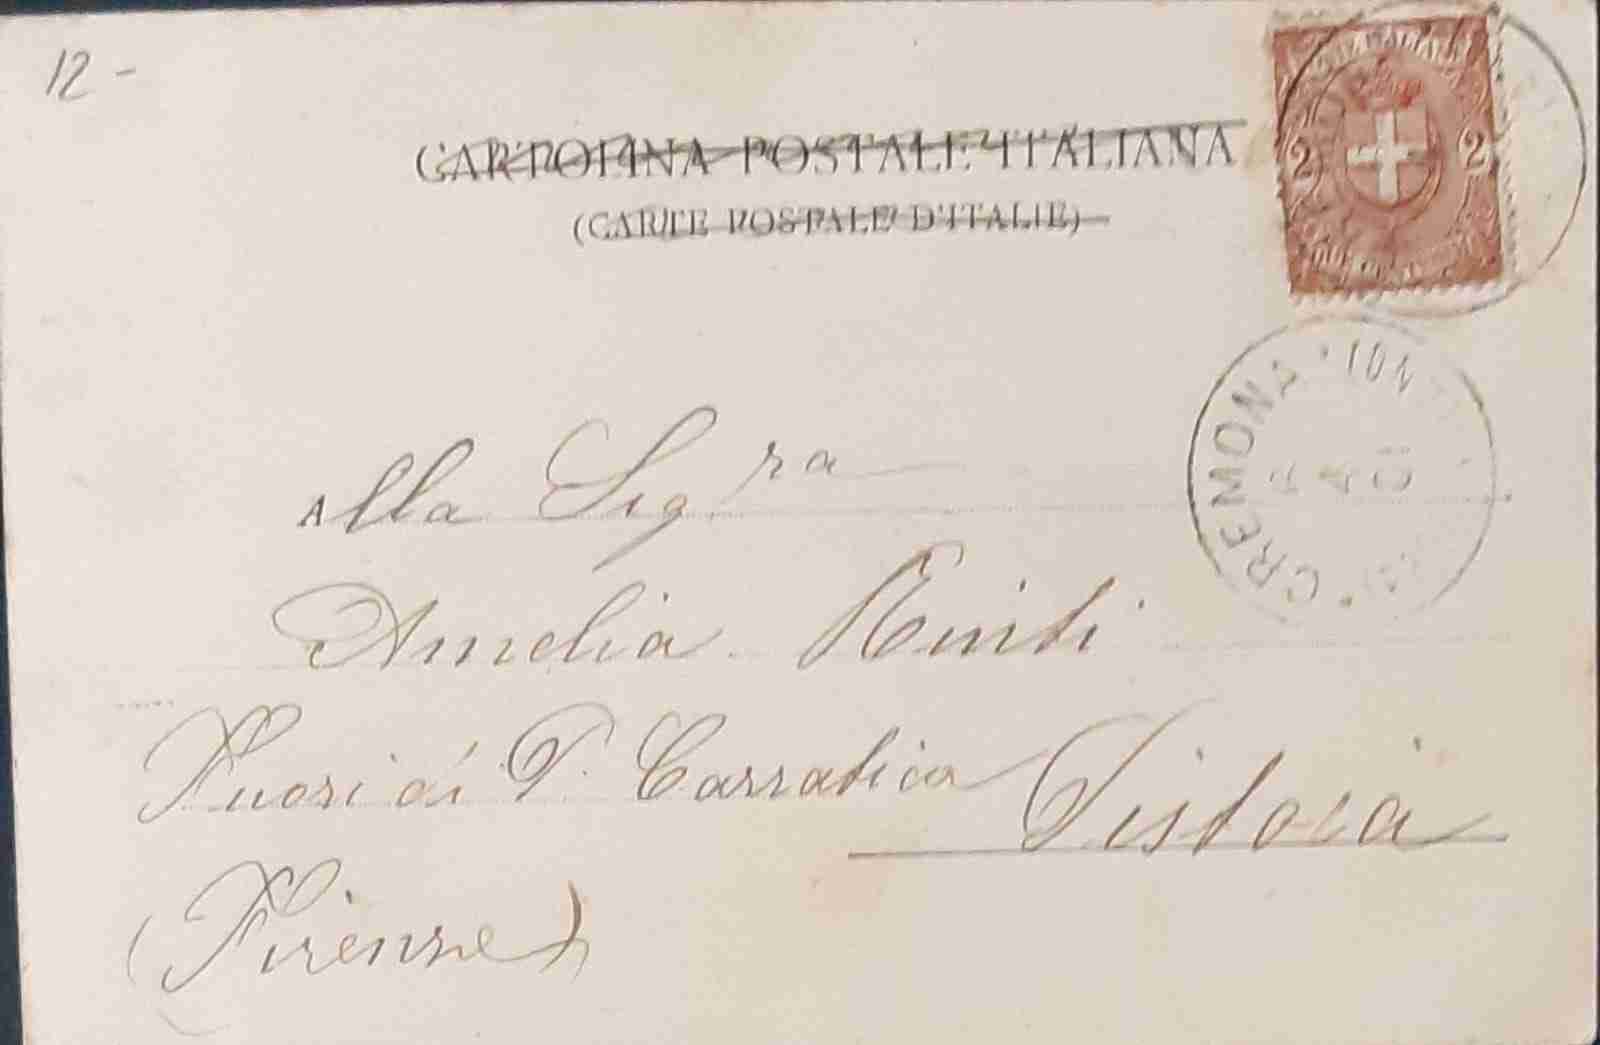 12 -
CARTOLINA POSTALE ITALIANA
(CARTE POSTALE D'ITALIE)
2 2
CREMONA
Alla Sigra
Amelia
Fuori di P. Carratica Pistoia
(Firenze)